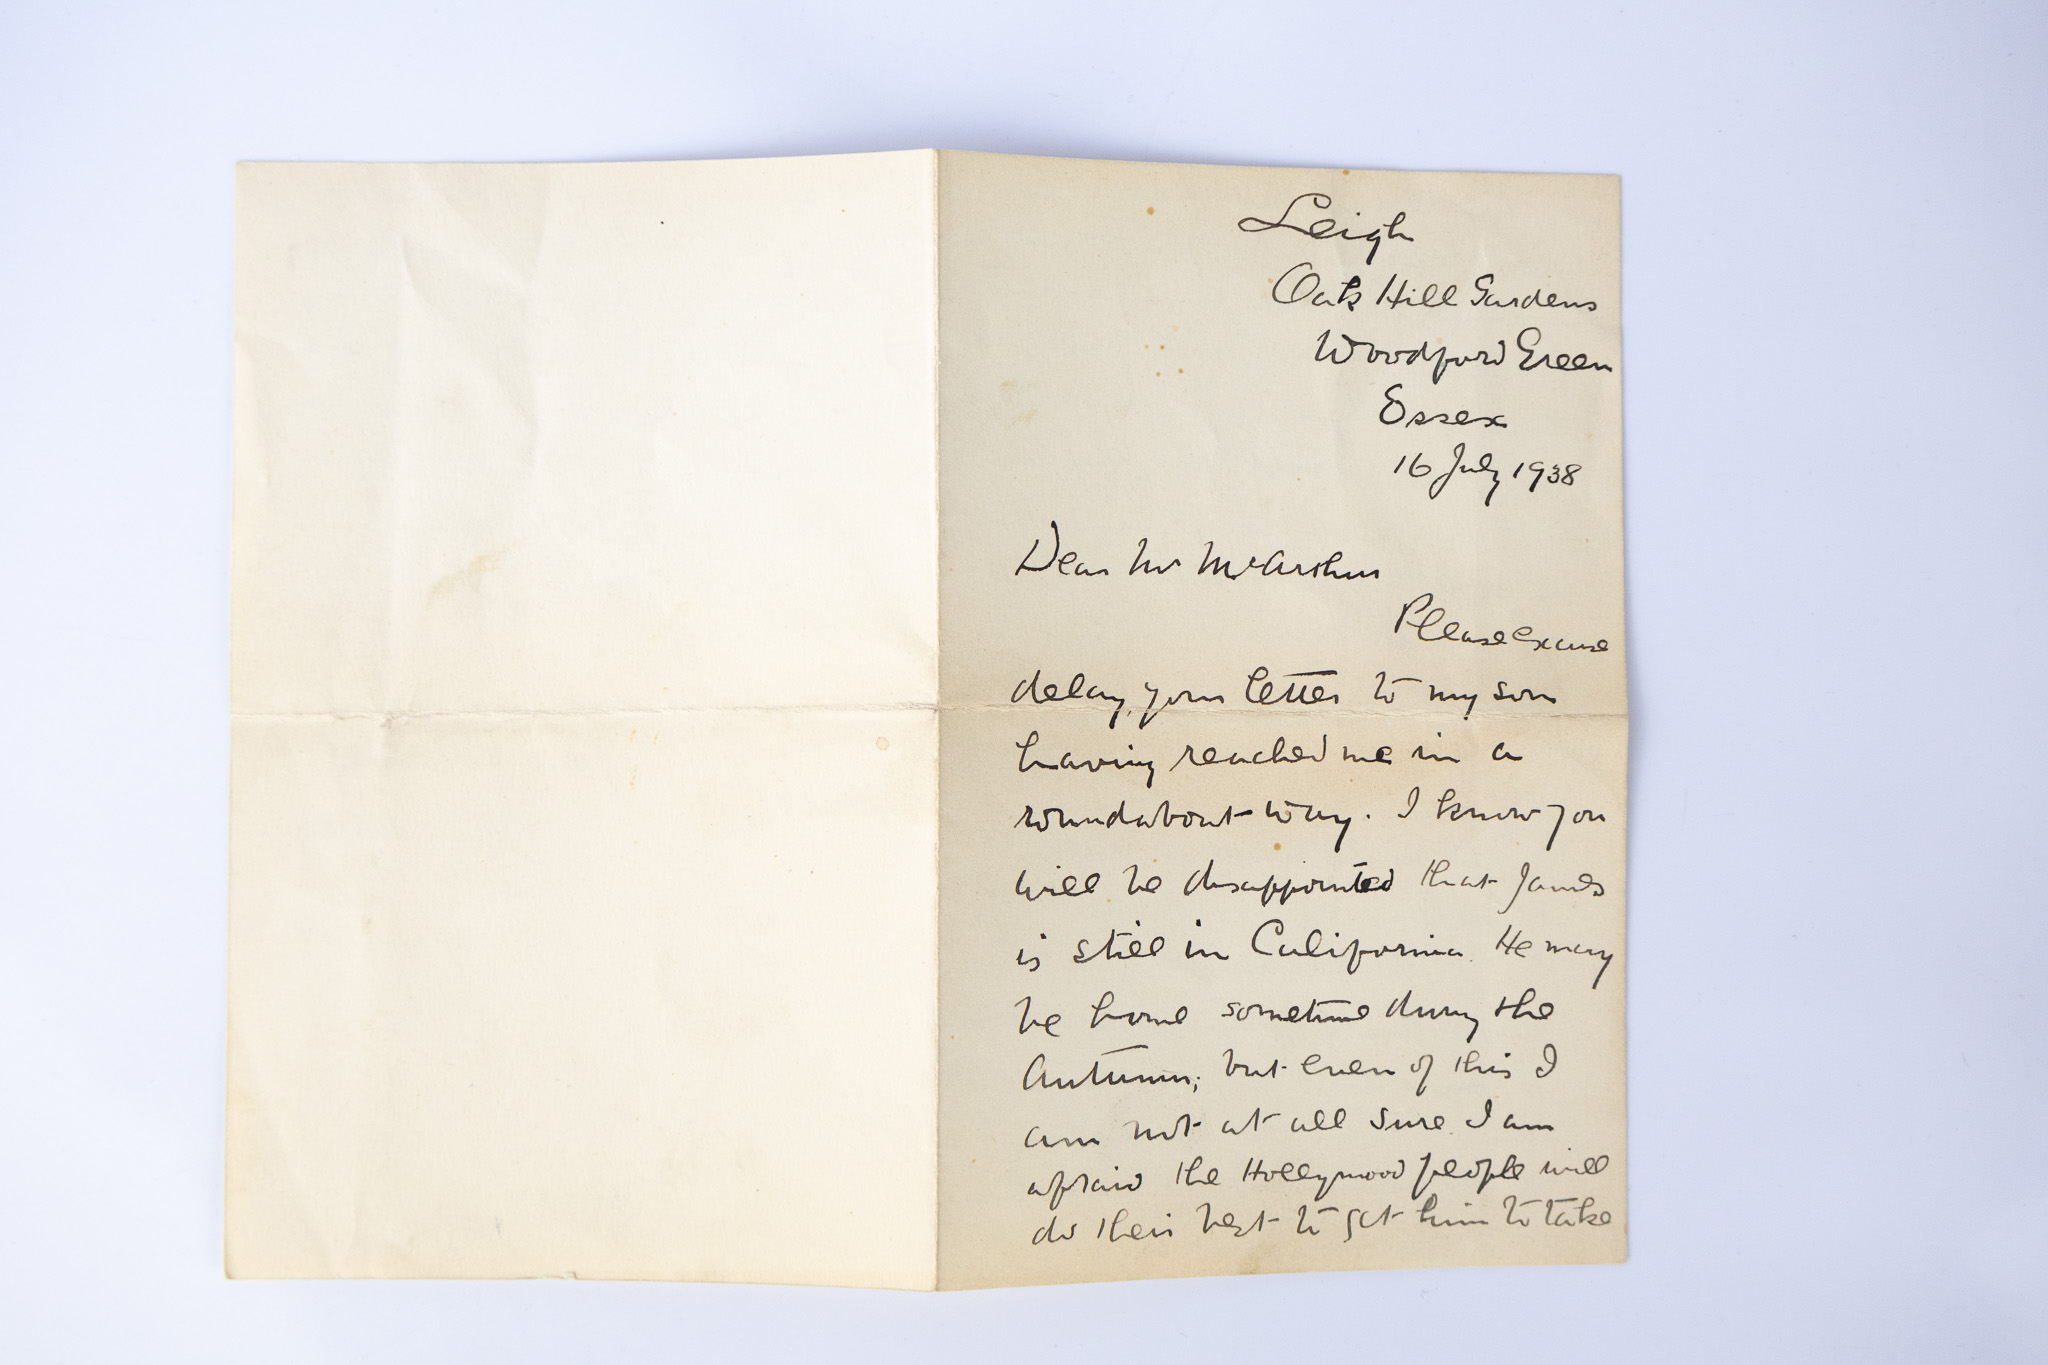 Leigh
Oak Hill Gardens
Woodford Green
Essex
16 July 1938
Dear Mr McArthur
Please excuse
delay, your letter to my son
having reached me in a
roundabout way. I know you
will be disappointed that James
is still in California. He may
be home sometime during the
Autumn; but even of this I
am not at all sure. I am
afraid the Hollywood people will
do their best to get him to take